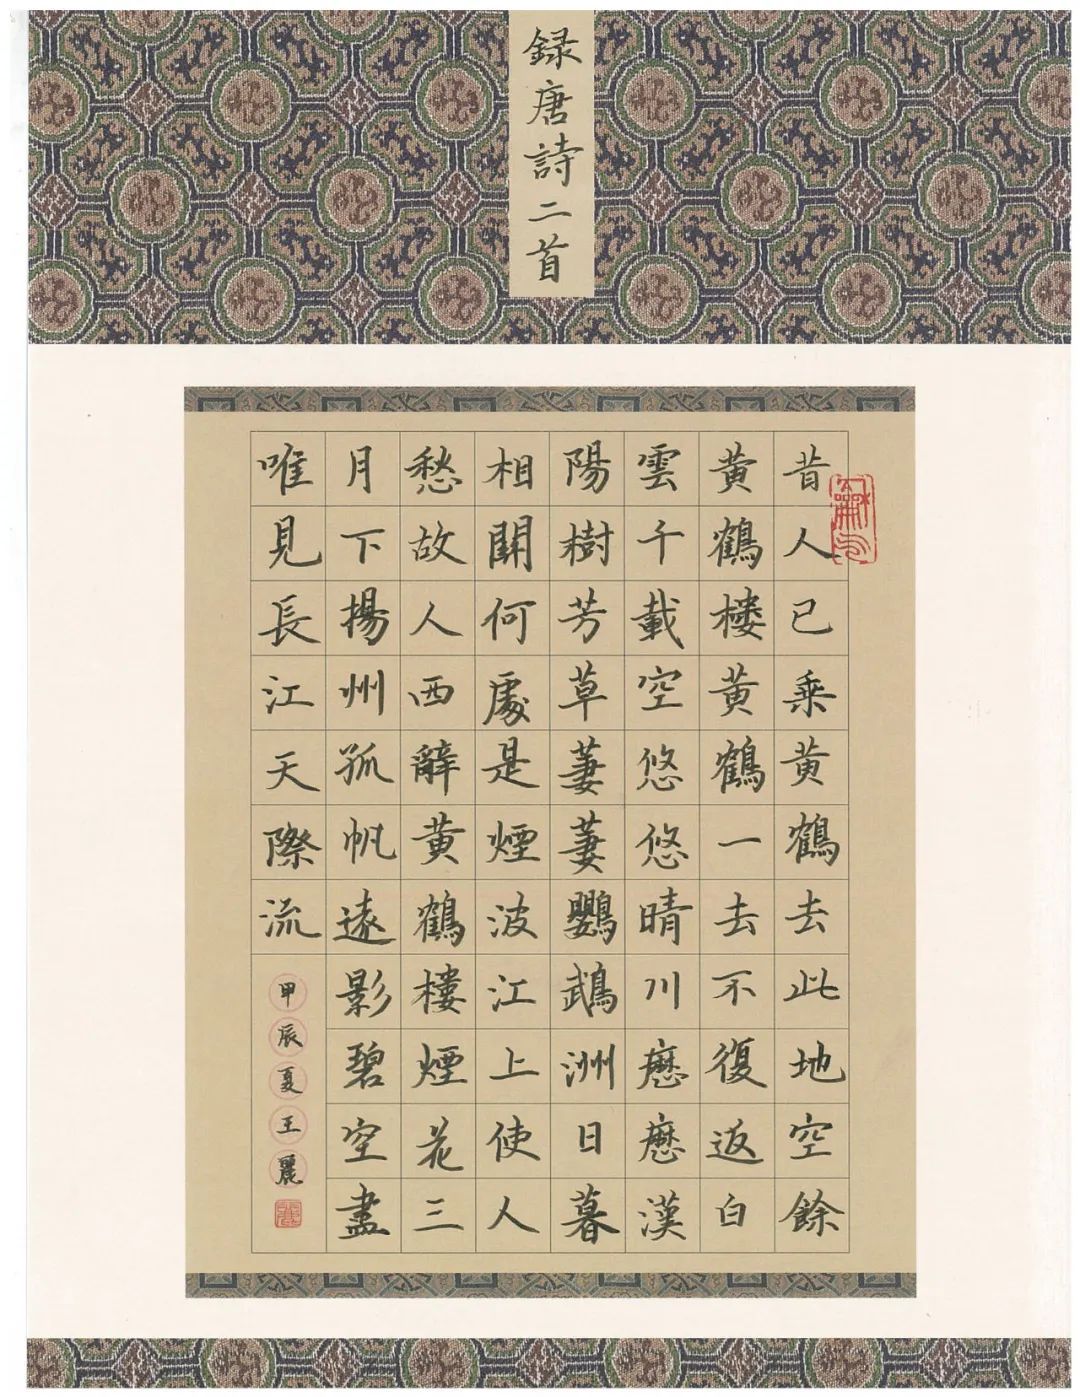 録唐詩二首
昔人已乘黄鶴去此地空餘
黄鶴樓黄鶴一去不復返白
雲千載空悠悠晴川歷歷漢
陽樹芳草萋萋鸚鵡洲日暮
相関何處是煙波江上使人
愁故人西辭黄鶴樓煙花三
月下揚州孤帆遠影碧空盡
唯見長江天際流
甲辰夏王麗